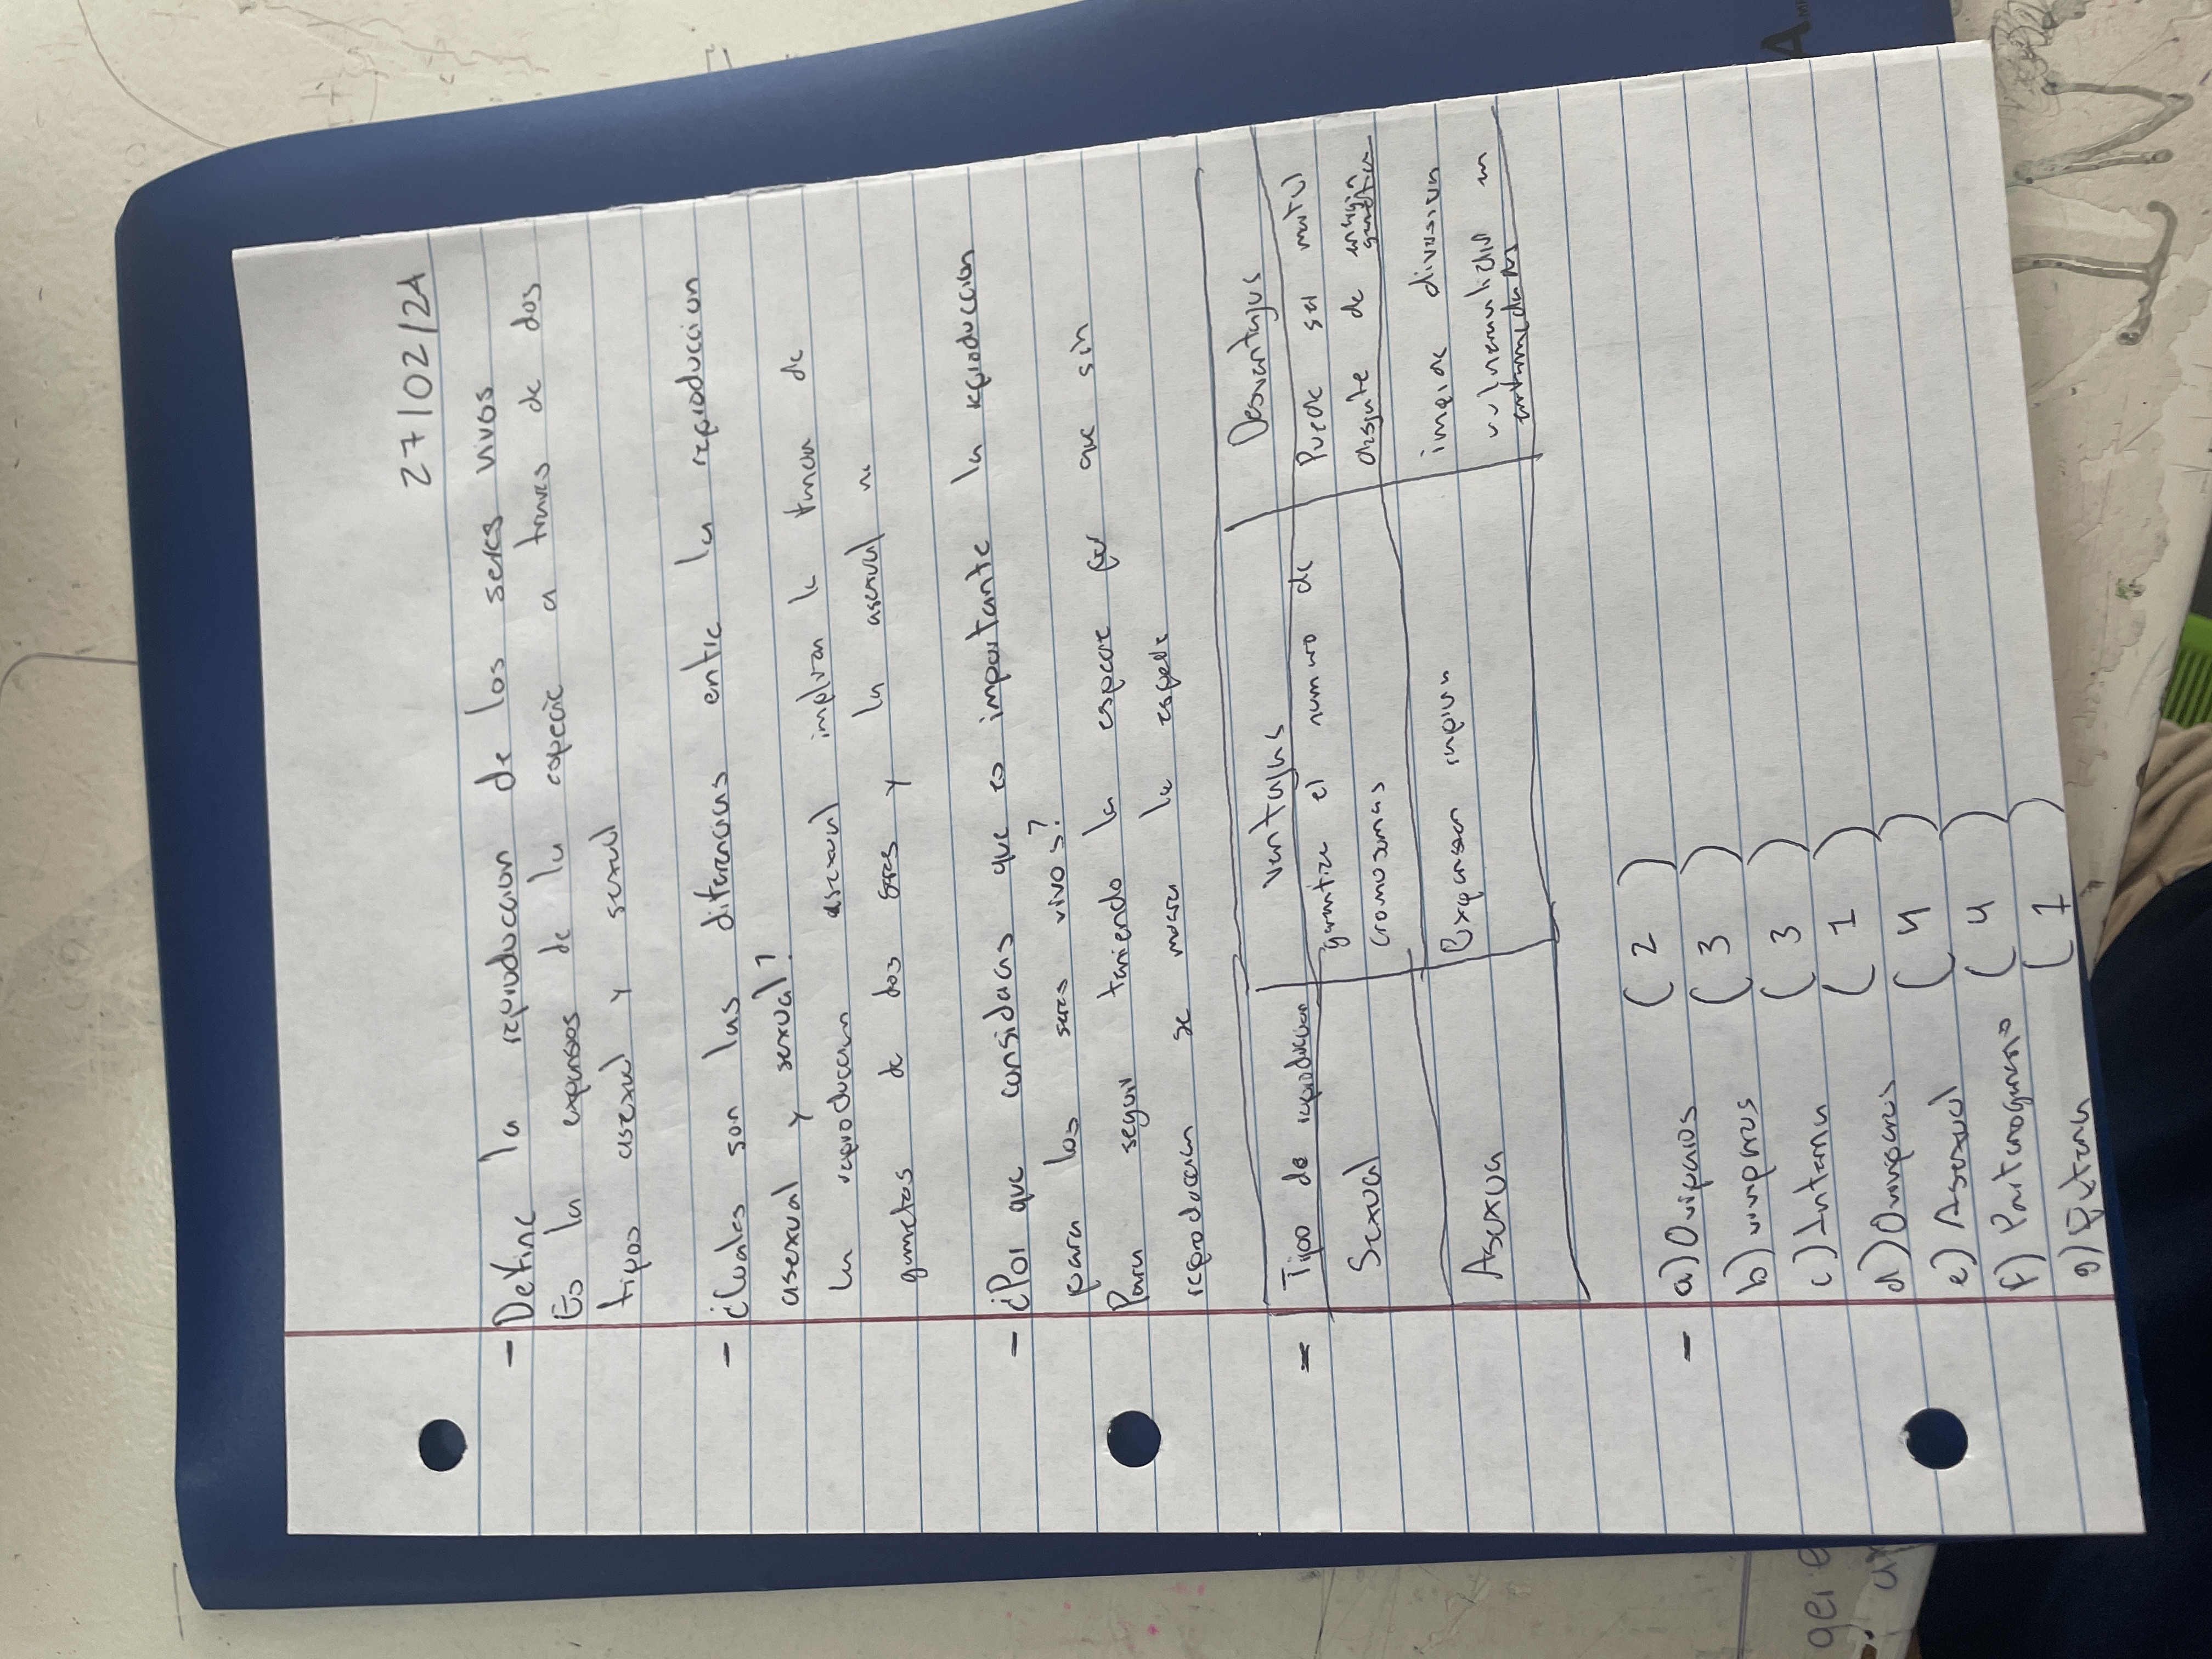 27/02/24
- Define la reproduccion de los seres vivos
Es la expansos de la especie a traves de dos
tipos asexual y sexual
- ¿Cuales son las diferencias entre la reproduccion
asexual y sexual?
La reproduccion asexual implvan la funcion de
gametos de dos seres y la asexual no
- ¿Por que consideras que es importante la reproduccion
para los seres vivos?
Para seguir teniendo la especie por que sin
reproduccion se muere la especie
- Tipo de reproduccion Ventajas Desventajas
Sexual garantiza el numero de cromosomas Puede ser mortal desgaste de energia
Asexua Expansion rapida diversion vulnerabilidad
- a) Oviparos (2)
b) viviparos (3)
c) Interna (3)
d) Oviparos (1)
e) Asexual (4)
f) (4)
g) Extern (1)